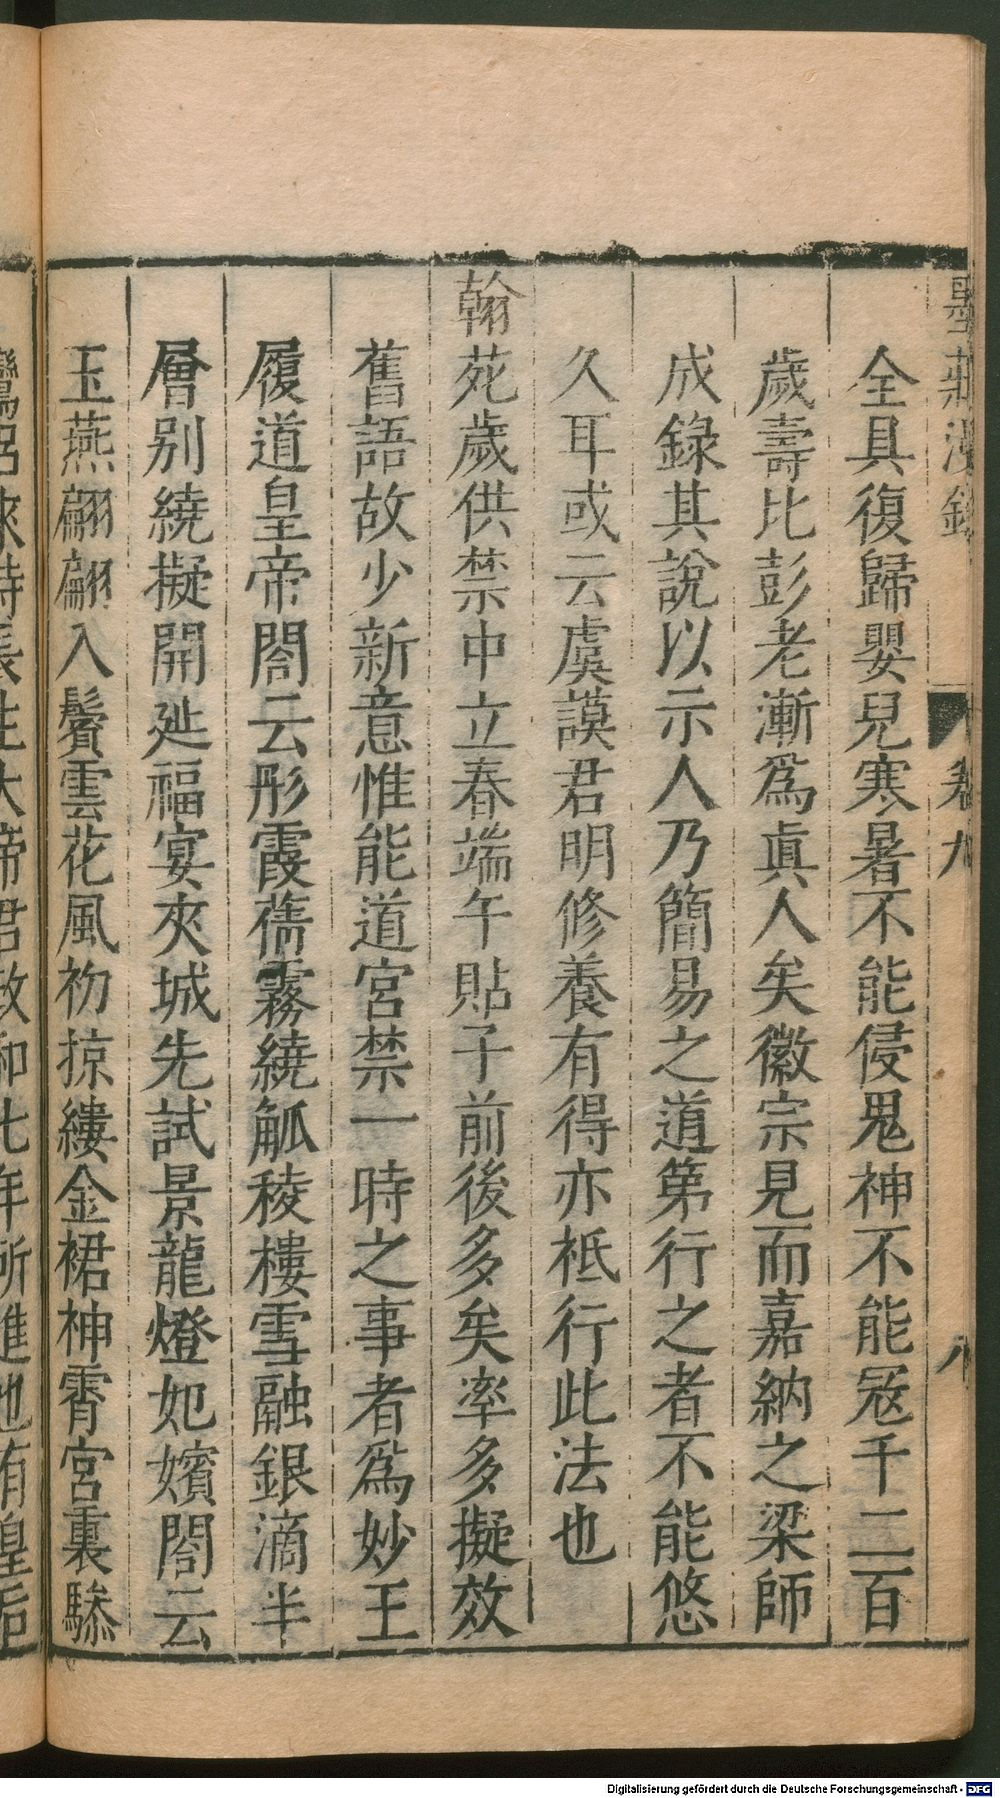 墨莊漫錄 卷九 八
全具復歸嬰兒寒暑不能侵鬼神不能寇千二百
歲壽比彭老漸爲眞人矣徽宗見而嘉納之梁師
成錄其說以示人乃簡易之道第行之者不能悠
久耳或云虞謨君明修養有得亦祗行此法也
翰苑歲供禁中立春端午貼子前後多矣率多擬效
舊語故少新意惟能道宮禁一時之事者爲妙王
履道皇帝閤云彤霞薦霧繞觚稜樓雪融銀滴半
層别繞擬開延福宴夾城先試景龍燈妃嬪閤云
玉燕翩翩入鬢雲花風初掠縷金裙神霄宮裏驂
鸞侶來侍長生大帝君政和七年所進也有皇后
Digitalisierung gefördert durch die Deutsche Forschungsgemeinschaft - DFG